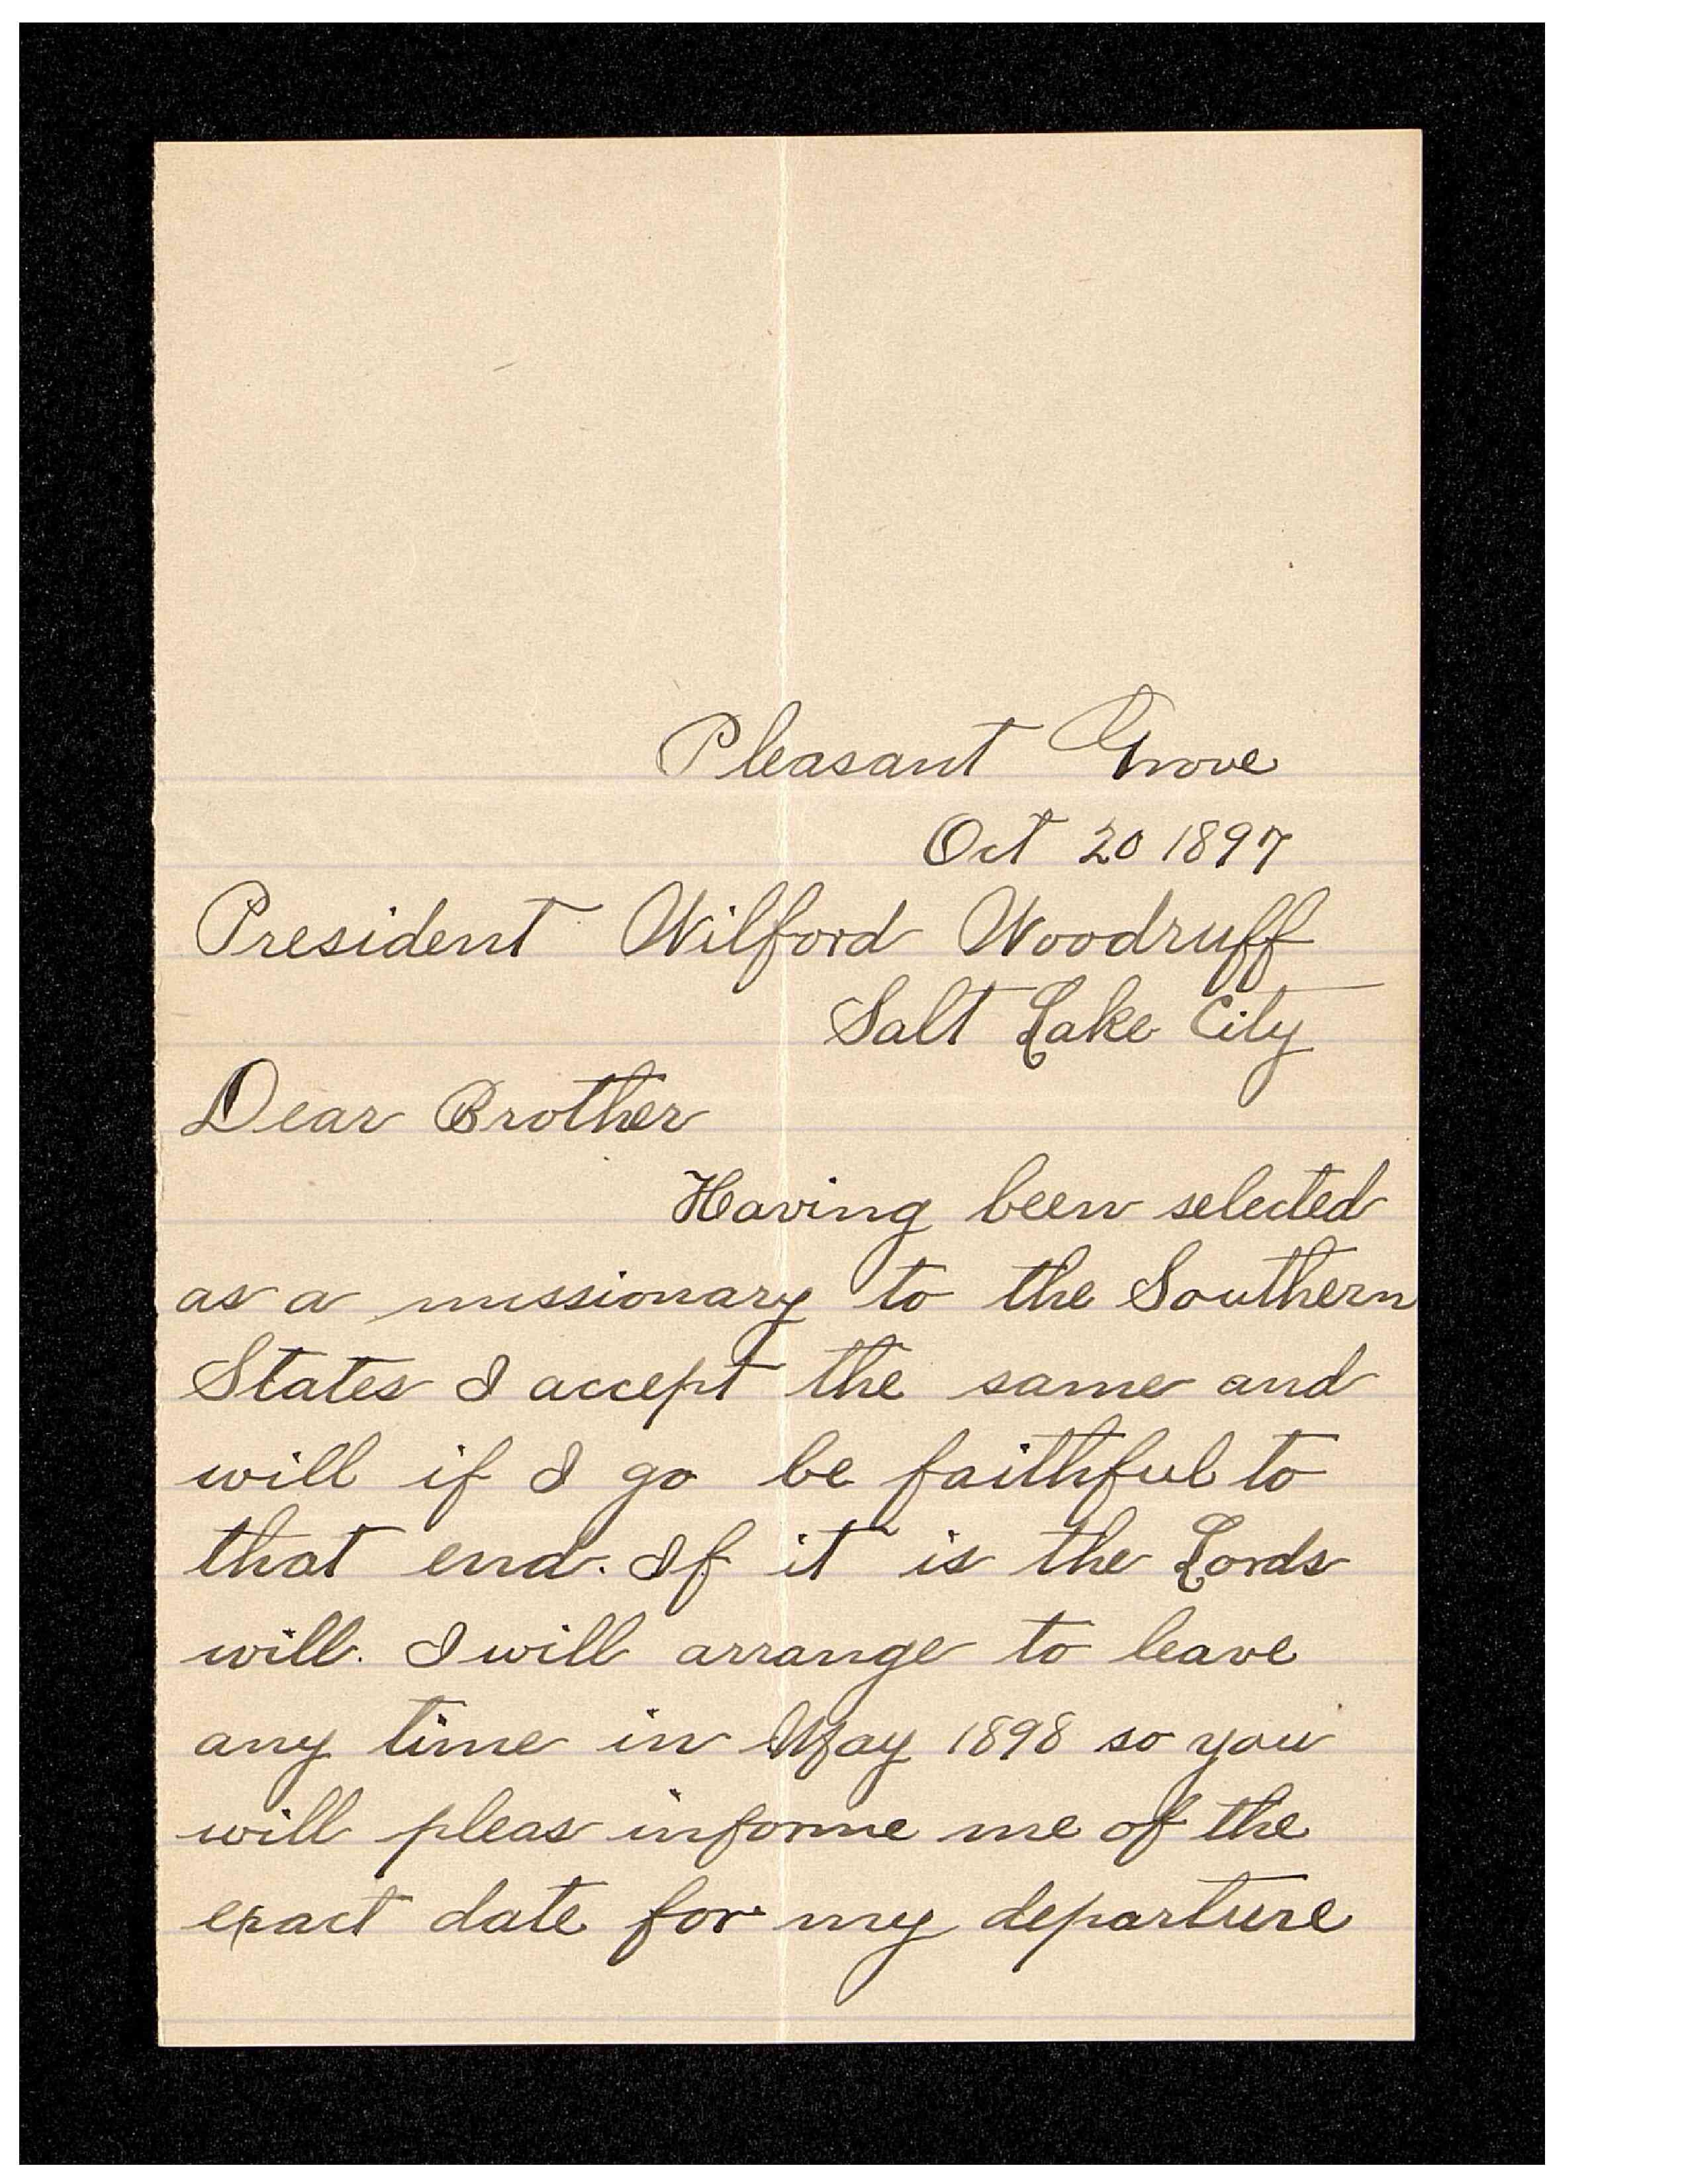 Pleasant Grove
Oct 20 1897
President Wilford Woodruff
Salt Lake City
Dear Brother
Having been selected
as a missionary to the Southern
States I accept the same and
will if I go be faithful to
that end. If it is the Lords
will. I will arrange to leave
any time in May 1898 so you
will pleas informe me of the
exact date for my departure